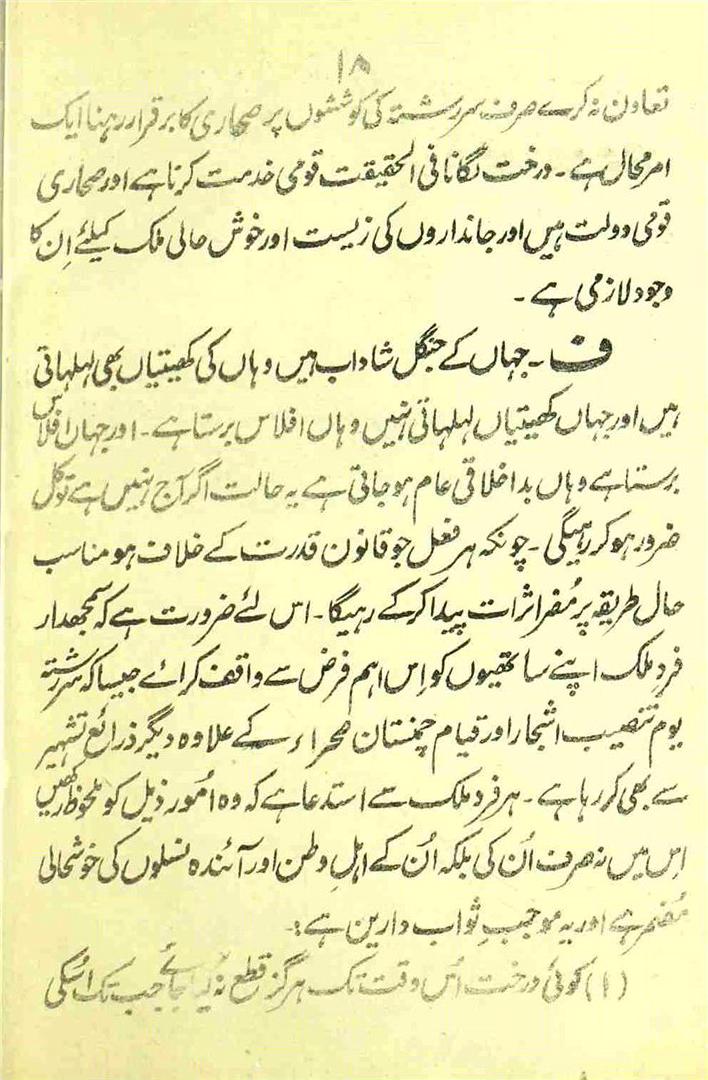 ۱۸
تعاون نہ کرے صرف سررشتہ کی کوششوں پر صحاری کا برقرار رہنا ایک
امر محال ہے ۔ درخت لگانا فی الحقیقت قومی خدمت کرنا ہے اور صحاری
قومی دولت ہیں اور جانداروں کی زیست اور خوش حالی ملک کیلئے اِن کا
وجود لازمی ہے ۔
ف ۔ جہاں کے جنگل شاداب ہیں وہاں کی کھیتیاں بھی لہلہاتی
ہیں اور جہاں کھیتیاں لہلہاتی نہیں وہاں افلاس برستا ہے ۔ اور جہاں افلاس
برستا ہے وہاں بد اخلاقی عام ہو جاتی ہے یہ حالت اگر آج نہیں ہے تو کل
ضرور ہو کر رہیگی ۔ چونکہ ہر فعل جو قانون قدرت کے خلاف ہو مناسب
حال طریقہ پر مُضر اثرات پیدا کر کے رہیگا ۔ اس لئے ضرورت ہے کہ سمجھدار
فردِ ملک اپنے ساتھیوں کو اِس اہم فرض سے واقف کرائے جیسا کہ سررشتہ
یوم تنصیب اشجار اور قیام چمنستان صحراء کے علاوہ دیگر ذرائع تشہیر
سے بھی کر رہا ہے ۔ ہر فرد ملک سے استدعا ہے کہ وہ اُمور ذیل کو ملحوظ رکھیں
اِس میں نہ صرف اُن کی بلکہ اُن کے اہلِ وطن اور آئندہ نسلوں کی خوشحالی
مُضمر ہے اور یہ موجبِ ثواب دارین ہے :۔
(۱) کوئی درخت اُس وقت تک ہرگز قطع نہ کیا جائے جب تک اُسکی